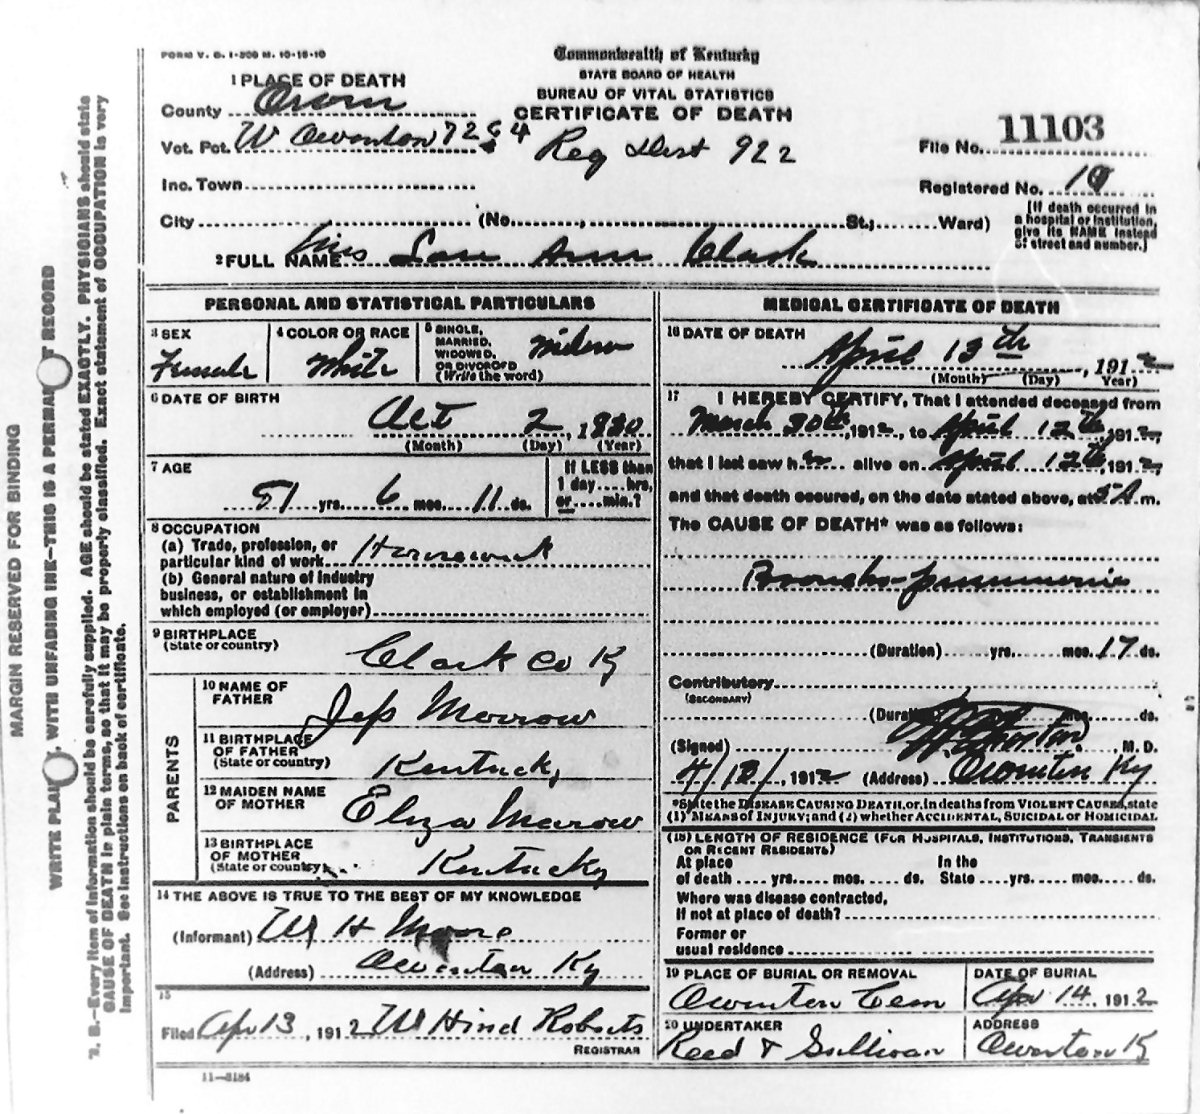 FORM V. S. 1-200 M. 10-15-10
Commonwealth of Kentucky
STATE BOARD OF HEALTH
BUREAU OF VITAL STATISTICS
CERTIFICATE OF DEATH
1 PLACE OF DEATH
County Owen
Vot. Pct. W Owenton 7264 Reg Dist 922
File No. 11103
Inc. Town
Registered No. 19
City (No. , St.; Ward)
[If death occurred in a hospital or institution, give its NAME instead of street and number.]
2 FULL NAME Lou Ann Clark
PERSONAL AND STATISTICAL PARTICULARS
3 SEX Female
4 COLOR OR RACE White
5 SINGLE, MARRIED, WIDOWED, OR DIVORCED (Write the word) Widow
6 DATE OF BIRTH
Oct 2, 1860
(Month) (Day) (Year)
7 AGE
51 yrs. 6 mos. 11 ds.
If LESS than 1 day....hrs, or....min.?
8 OCCUPATION
(a) Trade, profession, or particular kind of work Housework
(b) General nature of industry business, or establishment in which employed (or employer)
9 BIRTHPLACE
(State or country) Clark Co Ky
PARENTS
10 NAME OF FATHER Jep Morrow
11 BIRTHPLACE OF FATHER (State or country) Kentucky
12 MAIDEN NAME OF MOTHER Eliza Morrow
13 BIRTHPLACE OF MOTHER (State or country) Kentucky
14 THE ABOVE IS TRUE TO THE BEST OF MY KNOWLEDGE
(Informant) W H Moore
(Address) Owenton Ky
15
Filed Apr 13, 1912 W Hind Roberts
REGISTRAR
11-3184
MEDICAL CERTIFICATE OF DEATH
16 DATE OF DEATH
April 13th, 1912
(Month) (Day) Year)
17 I HEREBY CERTIFY, That I attended deceased from
March 30th, 1912, to April 12th, 1912,
that I last saw her alive on April 12th, 1912,
and that death occured, on the date stated above, at 5 A m.
The CAUSE OF DEATH* was as follows:
Broncho-pneumonia
(Duration) yrs. mos. 17 ds.
Contributory
(SECONDARY)
(Duration) mos. ds.
(Signed) , M. D.
4/13/, 1912 (Address) Owenton Ky
*State the DISEASE CAUSING DEATH, or, in deaths from VIOLENT CAUSES, state
(1) MEANS of INJURY; and (2) whether ACCIDENTAL, SUICIDAL or HOMICIDAL
(18) LENGTH OF RESIDENCE (FOR HOSPITALS, INSTITUTIONS, TRANSIENTS
OR RECENT RESIDENTS)
At place of death .... yrs. mos. ds. In the State .... yrs. mos. ds.
Where was disease contracted,
If not at place of death?
Former or
usual residence
19 PLACE OF BURIAL OR REMOVAL
Owenton Cem
DATE OF BURIAL
Apr 14, 1912
20 UNDERTAKER
Reed & Sullivan
ADDRESS
Owenton K
MARGIN RESERVED FOR BINDING
WRITE PLAINLY, WITH UNFADING INK—THIS IS A PERMANENT RECORD
N. B.—Every item of information should be carefully supplied. AGE should be stated EXACTLY. PHYSICIANS should state
CAUSE OF DEATH in plain terms, so that it may be properly classified. Exact statement of OCCUPATION is very
important. See instructions on back of certificate.